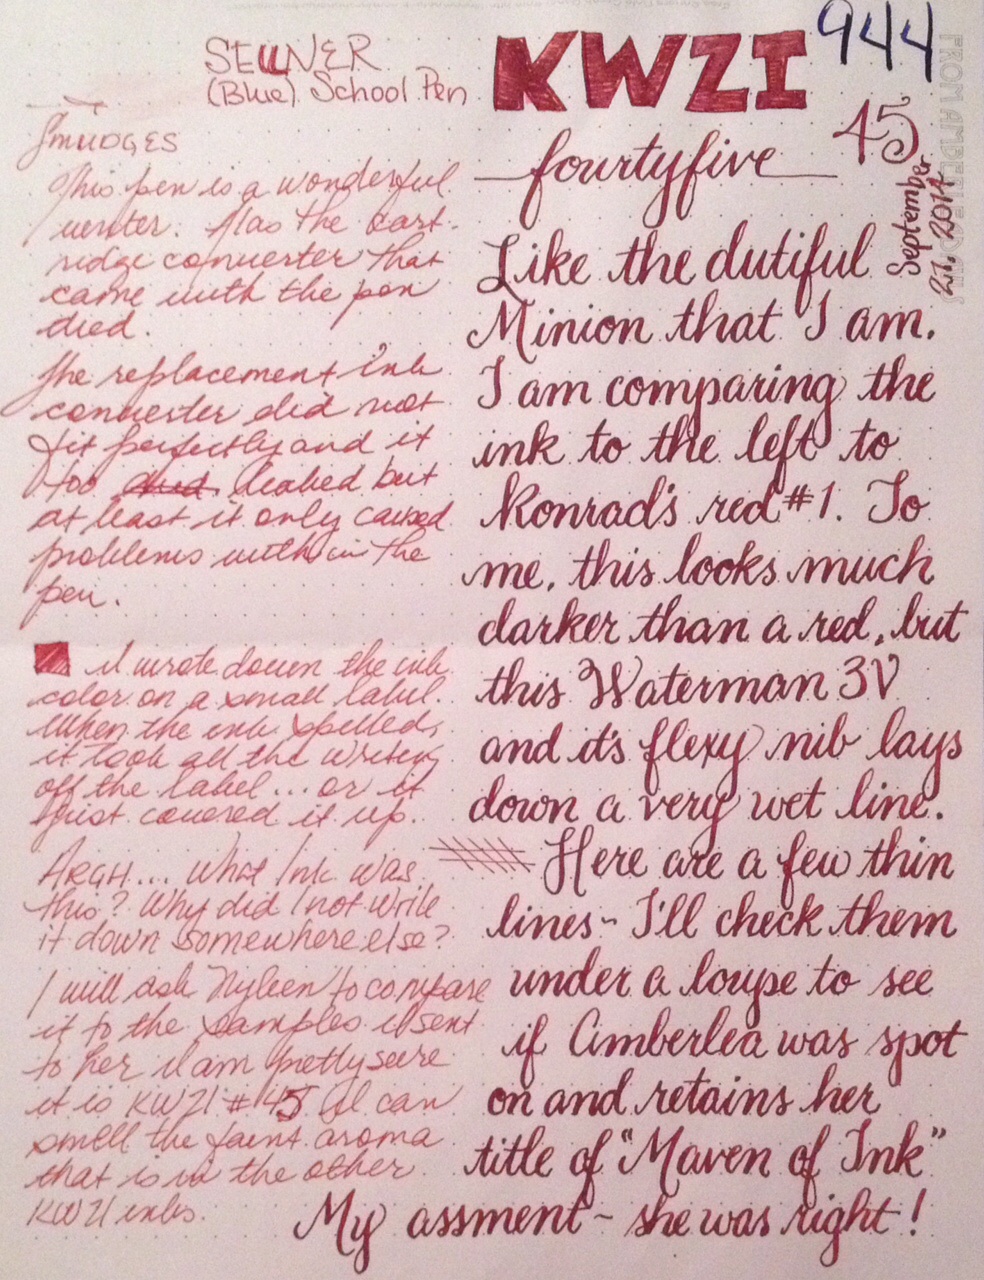 SELLNER
(Blue) School Pen
Smudges
This pen is a wonderful
writer. Alas the cart-
ridge converter that
came with the pen
died.
The replacement ink
converter did not
fit perfectly and it
too died leaked but
at least it only caused
problems within the
pen.
I wrote down the ink
color on a small label.
When the ink spilled,
it took all the writing
off the label... or it
just covered it up.
ARGH... What Ink was
this? Why did I not write
it down somewhere else?
I will ask Nyleen to compare
it to the samples I sent
to her. I am pretty sure
it is KWZI #45. I can
smell the faint aroma
that is in the other
KWZI inks.
KWZI
944
45
fourtyfive
September
21, 2014
FROMAMBERLEA
Like the dutiful
Minion that I am.
I am comparing the
ink to the left to
Konrad's red #1. To
me, this looks much
darker than a red, but
this Waterman 3V
and it's flexy nib lays
down a very wet line.
Here are a few thin
lines - I'll check them
under a loupe to see
if Amberlea was spot
on and retains her
title of "Maven of Ink"
My assment - she was right!